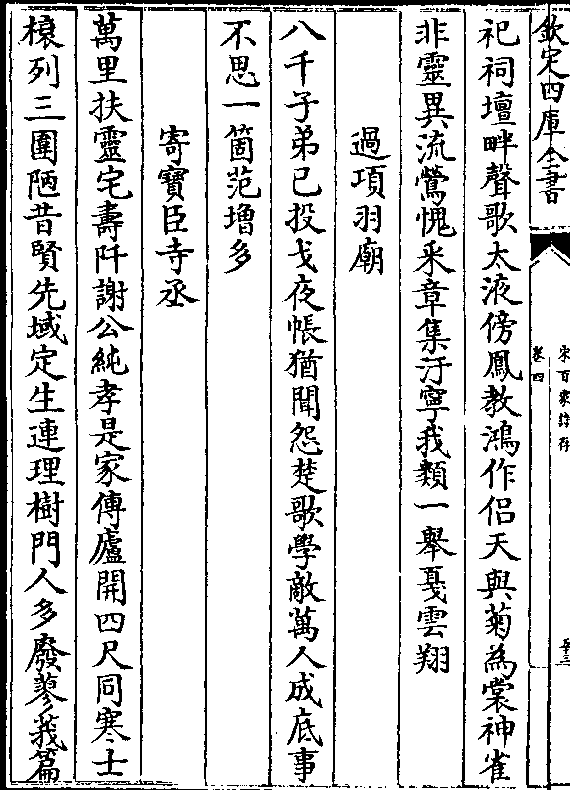 欽定四庫全書
宋百家詩存
卷四
祀祠壇畔聲歌太液傍鳳教鴻作侣天與菊為裳神雀
非靈異流鶯愧釆章集汙寧我類一舉戞雲翔
過項羽廟
八千子弟已投戈夜帳猶聞怨楚歌學敵萬人成底事
不思一箇范增多
寄寶臣寺丞
萬里扶靈宅壽阡謝公純孝是家傳廬開四尺同寒士
榱列三圍陋昔賢先域定生連理樹門人多廢蓼莪篇